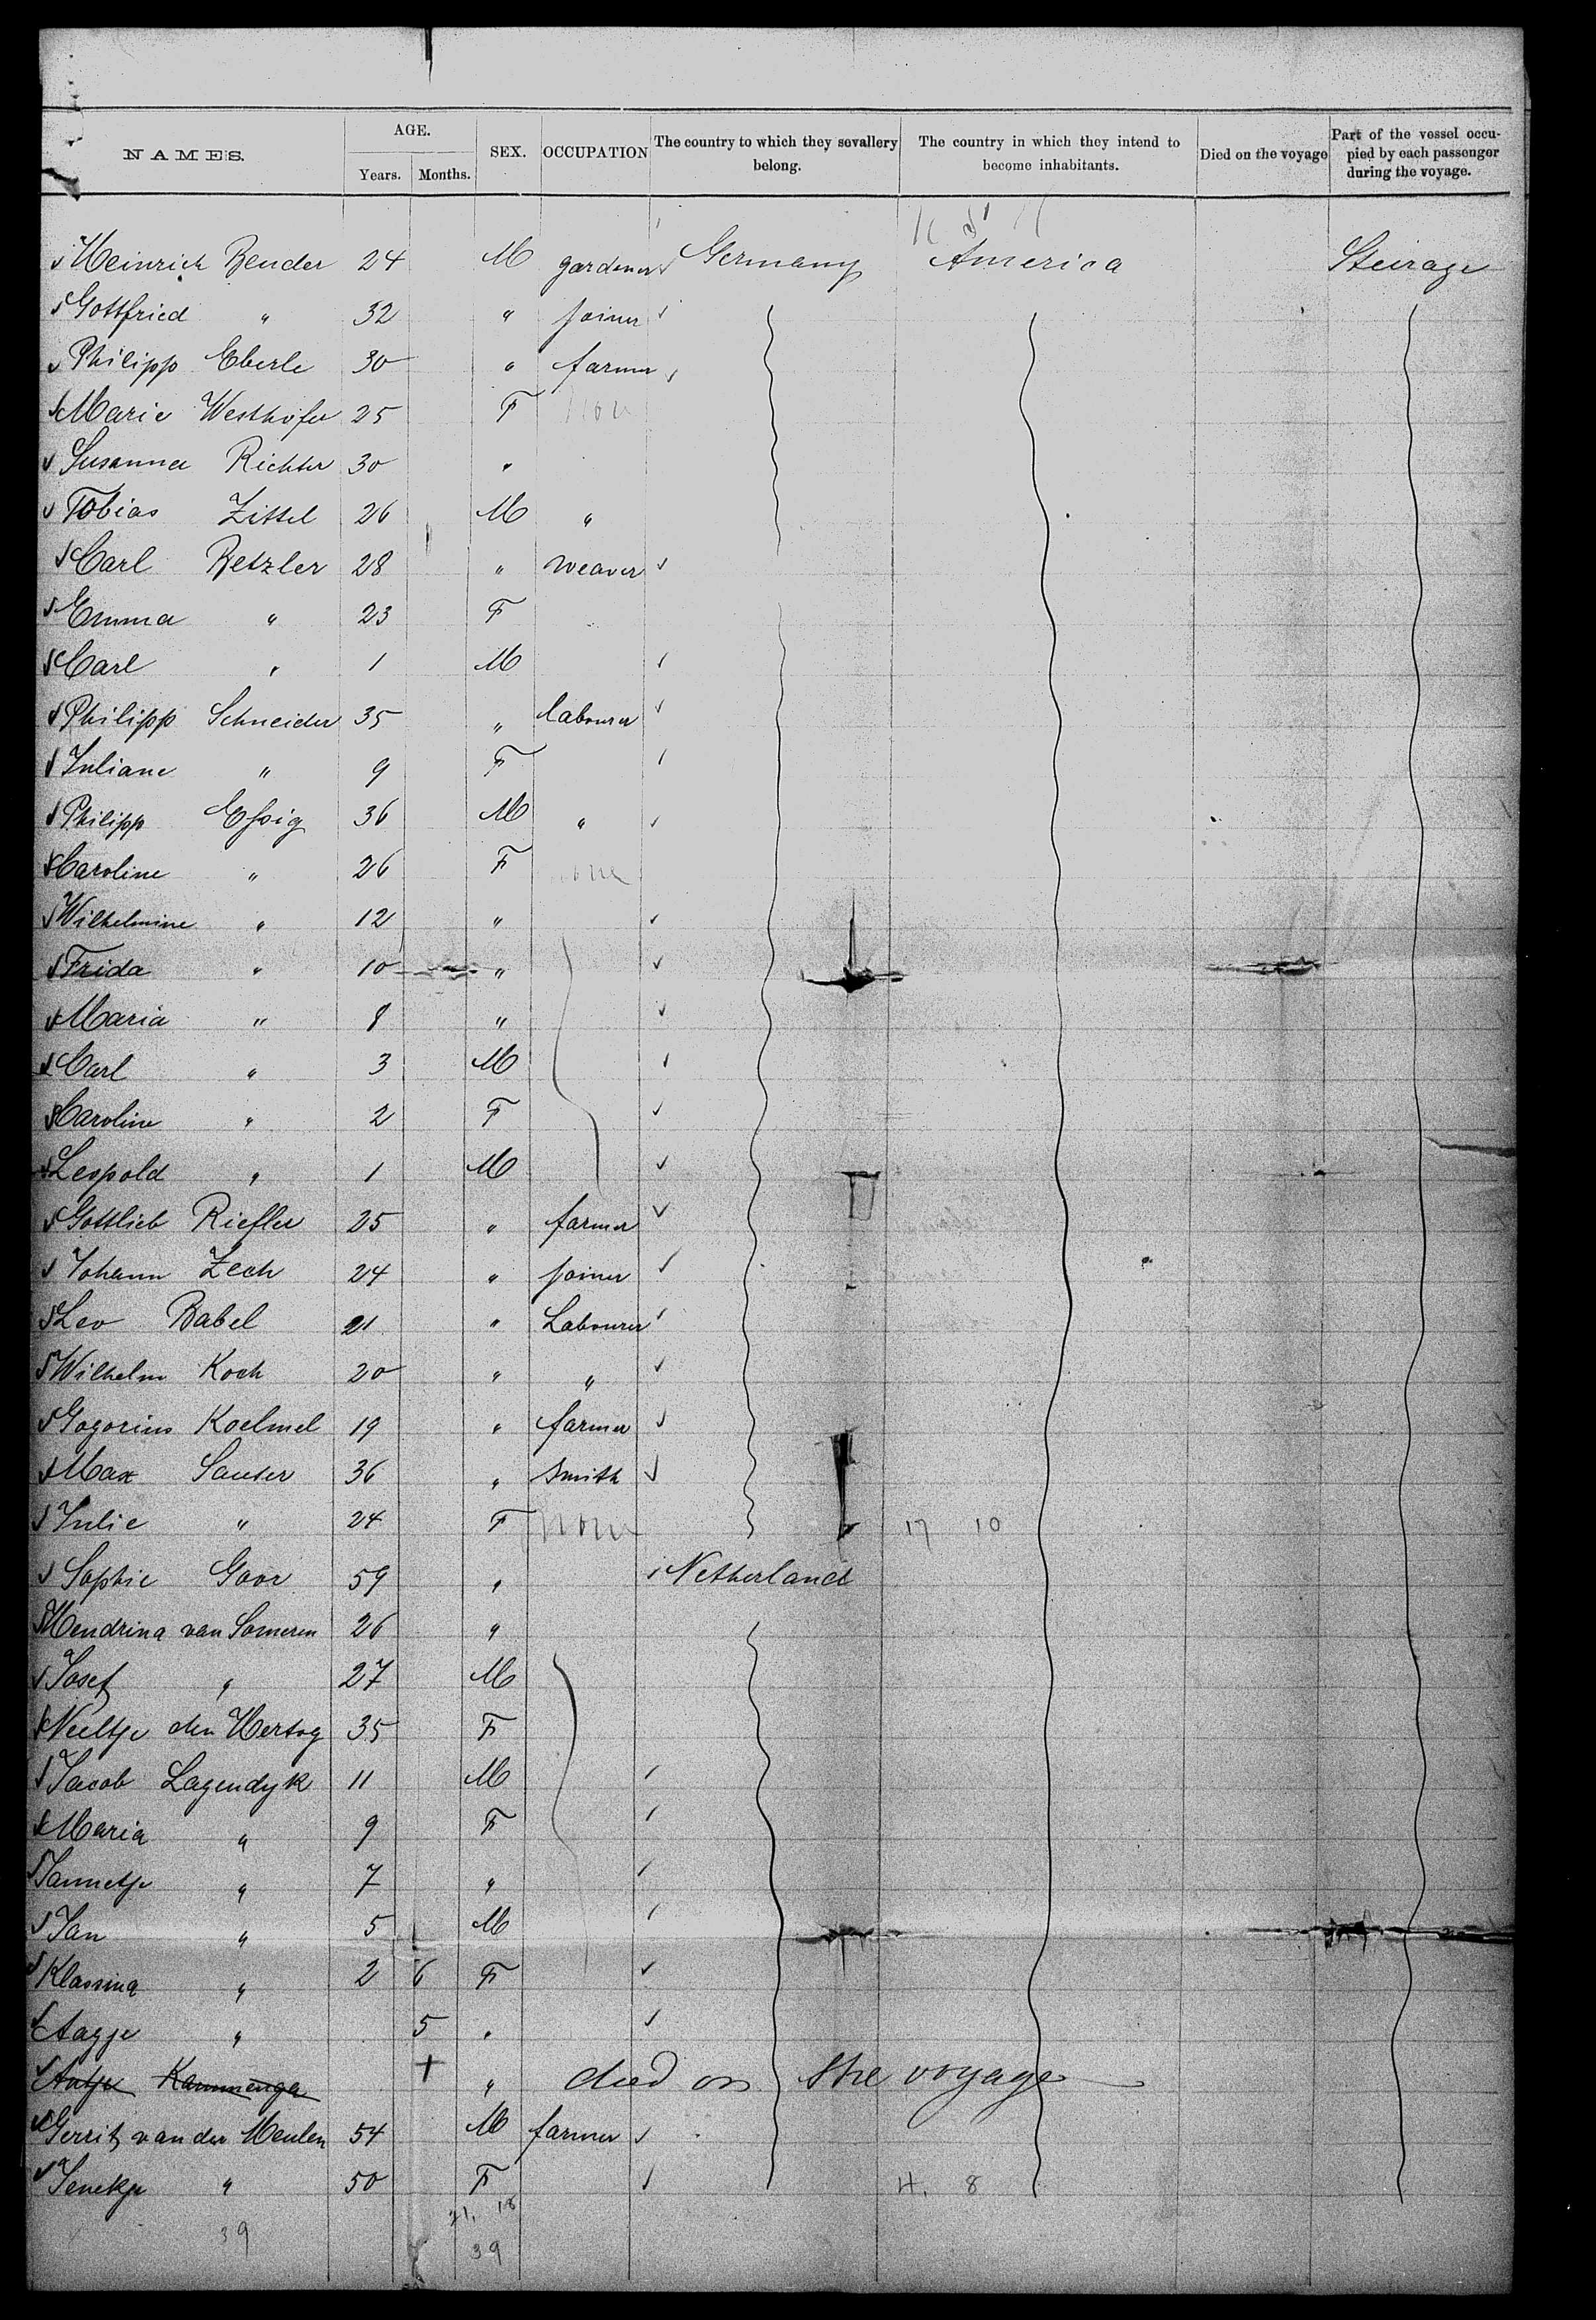 NAMES. AGE. Years. Months. SEX. OCCUPATION The country to which they sevallery belong. The country in which they intend to become inhabitants. Died on the voyage Part of the vessel occu-pied by each passenger during the voyage.
Heinrich Bender 24 M gardener Germany America Steirage
Gottfried " 32 " joiner
Philipp Eberle 30 " farmer
Marie Westhofer 25 F non
Susanna Richter 30 "
Tobias Zittel 26 M "
Carl Betzler 28 " weaver
Emma " 23 F
Carl " 1 M
Philipp Schneider 35 " labourer
Juliane " 9 F
Philipp Eßig 36 M "
Caroline " 26 F none
Wilhelmine " 12 "
Frida " 10 "
Maria " 8 "
Carl " 3 M
Caroline " 2 F
Leopold " 1 M
Gottlieb Riefler 25 " farmer
Johann Zech 24 " joiner
Leo Babel 21 " Labourer
Wilhelm Koch 20 " "
Gogorius Koelmel 19 " farmer
Max Sauter 36 " smith
Julie " 24 F none 17 10
Sophie Goor 59 " Netherland
Hendrina van Someren 26 "
Josef " 27 M
Neeltje den Hertog 35 F
Jacob Lagendyk 11 M
Maria " 9 F
Jannetje " 7 "
Jan " 5 M
Klassina " 2 6 F
Aagje " 5 "
Antje Kammenga + " died on the voyage
Gerrit van der Meulen 54 M farmer
Jenekje " 50 F 4. 8
21. 18
39 39